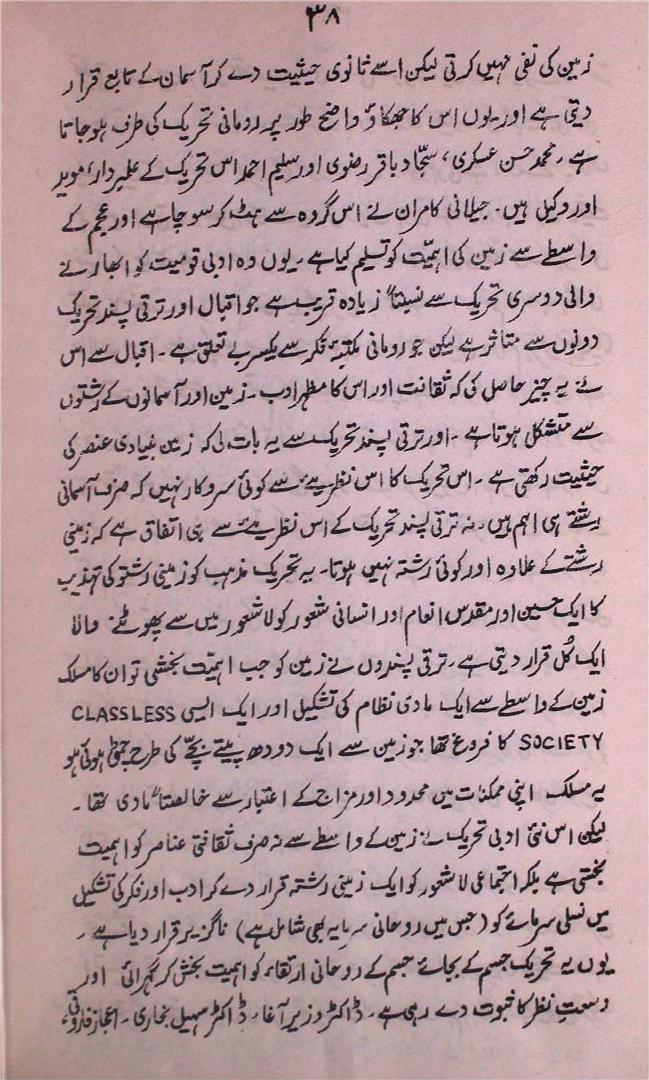 ۳۸
زمین کی نفی نہیں کرتی لیکن اسے ثانوی حیثیت دے کر آسمان کے تابع قرار
دیتی ہے اور یوں اس کا جھکاؤ واضح طور پر رومانی تحریک کی طرف ہو جاتا
ہے ۔ محمد حسن عسکری ، سجّاد باقر رضوی اور سلیم احمد اس تحریک کے علمبردار، موید
اور وکیل ہیں۔ جیلانی کامران نے اس گروہ سے ہٹ کر سوچا ہے اور عجم کے
واسطے سے زمین کی اہمیّت کو تسلیم کیا ہے ۔ یوں وہ ادبی قومیت کو ابھارنے
والی دوسری تحریک سے نسبتاً زیادہ قریب ہے جو اقبال اور ترقی پسند تحریک
دونوں سے متاثر ہے لیکن جو رومانی مکتبۂ فکر سے یکسر بے تعلق ہے ۔ اقبال سے اس
نے یہ چیز حاصل کی کہ ثقافت اور اس کا مظہر ادب ۔ زمین اور آسمانوں کے رشتوں
سے متشکل ہوتا ہے ۔ اور ترقی پسند تحریک سے یہ بات لی کہ زمین بنیادی عنصر کی
حیثیت رکھتی ہے ۔ اس تحریک کا اس نظریے سے کوئی سروکار نہیں کہ صرف آسمانی
رشتے ہی اہم ہیں۔ نہ ترقی پسند تحریک کے اس نظریے سے ہی اتفاق ہے کہ زمینی
رشتے کے علاوہ اور کوئی رشتہ نہیں ہوتا۔ یہ تحریک مذہب کو زمینی رشتو کی تہذیب
کا ایک حسین اور مقدس انعام اور انسانی شعور کو لاشعور میں سے پھوٹنے والا
ایک کُل قرار دیتی ہے ۔ ترقی پسندوں نے زمین کو جب اہمیّت بخشی تو ان کا مسلک
زمین کے واسطے سے ایک مادی نظام کی تشکیل اور ایک ایسی CLASSLESS
SOCIETY کا فروغ تھا جو زمین سے ایک دودھ پیتے بچّے کی طرح چمٹی ہوئی ہو
یہ مسلک اپنی ممکنات میں محدود اور مزاج کے اعتبار سے خالصتاً مادی تھا ۔
لیکن اس نئی ادبی تحریک نے زمین کے واسطے سے نہ صرف ثقافتی عناصر کو اہمیت
بخشتی ہے بلکہ اجتماعی لاشعور کو ایک زمینی رشتہ قرار دے کر ادب اور فکر کی تشکیل
میں نسلی سرمائے کو (جس میں روحانی سرمایہ بھی شامل ہے) ناگزیر قرار دیا ہے ۔
یوں یہ تحریک جسم کے بجائے جسم کے روحانی ارتقاء کو اہمیت بخش کر گہرائی اور
وسعتِ نظر کا ثبوت دے رہی ہے۔ ڈاکٹر وزیر آغا، ڈاکٹر سہیل بخاری ۔ اعجاز فاروقی،